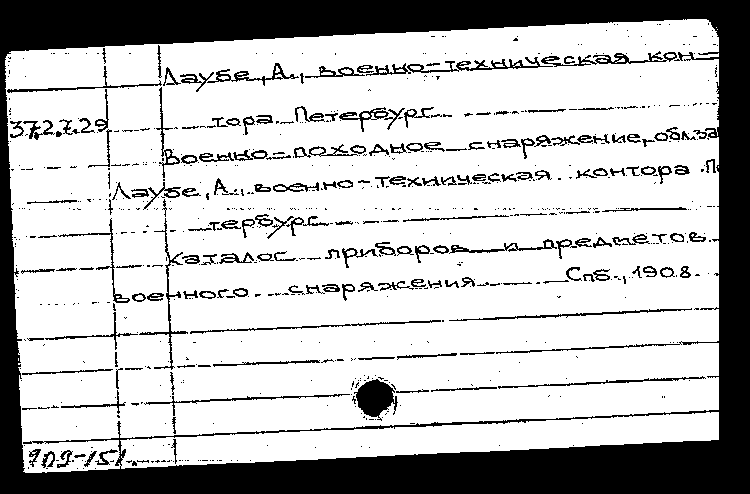 Лаубе, А., военно-техническая кон-
37.2.7.29
тора Петербург
Военно-походное снаряжение, обяза
Лаубе, А., военно-техническая контора Пе
тербург
Каталог приборов и предметов
военного снаряжения Спб., 1908.
909-151.